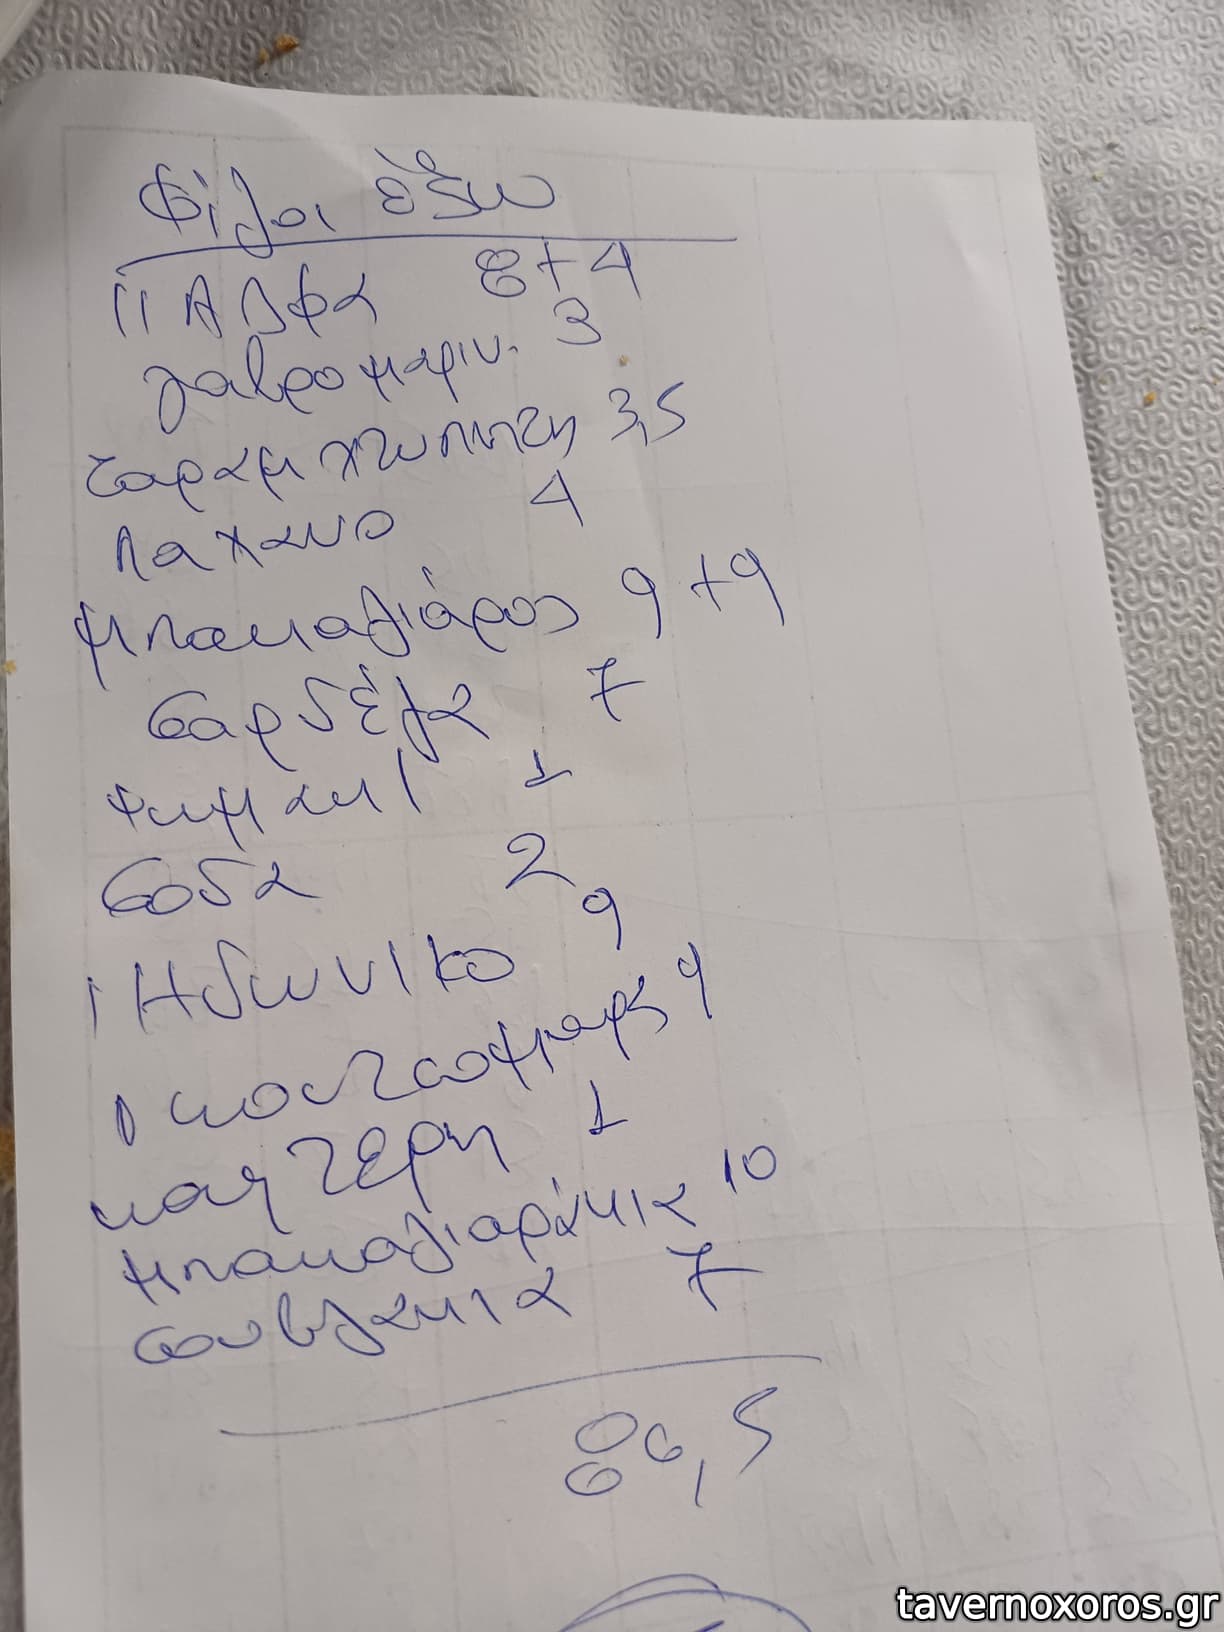 Φίλοι έξω
11 Αλφα 8+4
γαβρο μαριν. 3
ταραμ χτυπητη 3,5
λαχανο 4
μπακαλιάρος 9+9
σαρδέλα 7
ψωμακι 1
σοδα 2
1 Ηδωνικο 9
1 κοντοσ 9
καυτερη 1
μπακαλιαράκια 10
σουβλακια 7
86,5
tavernoxoros.gr